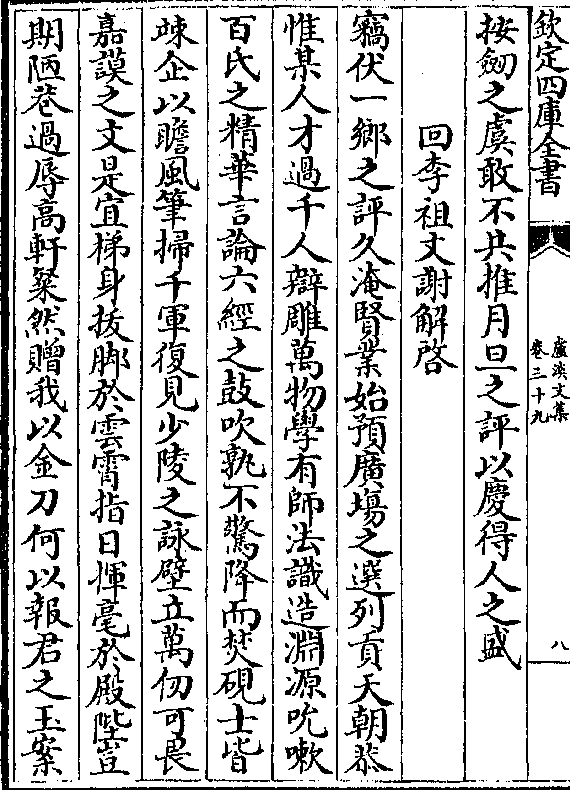 欽定四庫全書
盧溪文集
卷三十九
八
按劒之虞敢不共推月旦之評以慶得人之盛
回李祖文謝解啓
竊伏一鄉之評久淹賢業始預廣塲之選列貢天朝恭
惟某人才過千人辯雕萬物學有師法識造淵源吮嗽
百氏之精華言論六經之鼓吹孰不驚降而焚硯士皆
竦企以瞻風筆掃千軍復見少陵之詠壁立萬仞可畏
嘉謨之文是宜梯身拔腳於雲霄指日揮毫於殿陛豈
期陋巷過辱高軒粲然贈我以金刀何以報君之玉案